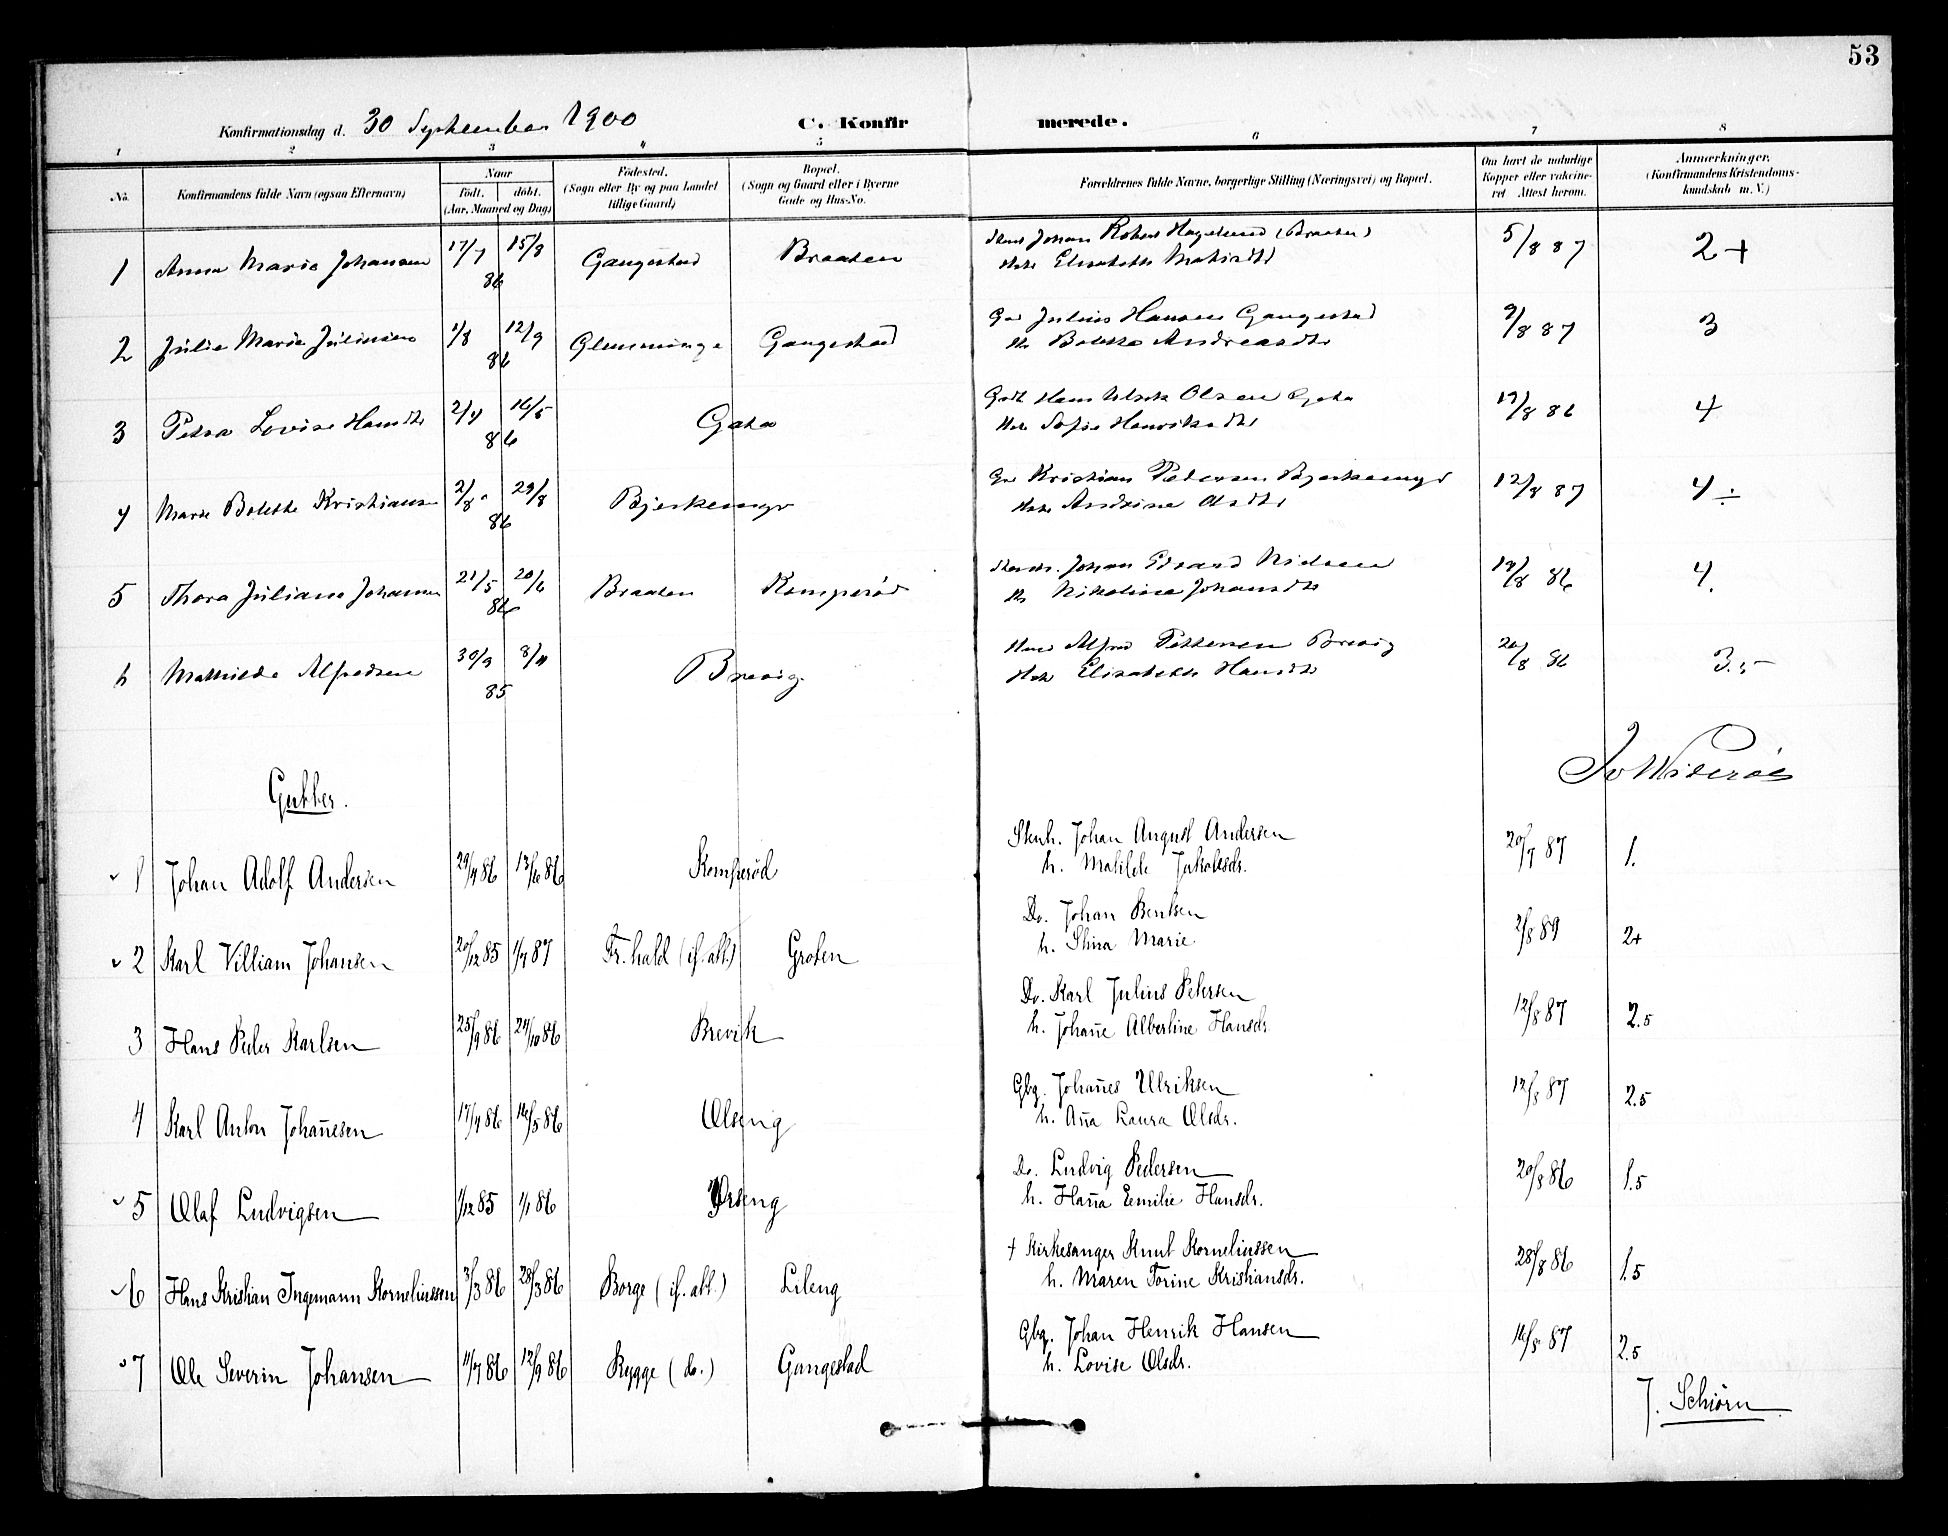 53
Konfirmationsdag d. 30 September 1900 C. Konfirmerede.
1 2 3 4 5 6 7 8
No. Konfirmandens fulde Navn (ogsaa Efternavn) Naar født. døbt. (Aar, Maaned og Dag) Fødested. (Sogn eller By og paa Landet tillige Gaard) Bopæl. (Sogn og Gaard eller i Byerne Gade og Hus-No. Forældrenes fulde Navne, borgerlige Stilling (Næringsvei) og Bopæl. Om havt de naturlige Kopper eller vakcineret Attest herom. Anmærkninger. (Konfirmandens Kristendomskundskab m. V.)
1 Anna Marie Johansen 17/7 15/8 86 Gangestad Braaten Johan Robert Hagelund (Braaten) Elisabeth Mathisdtr 5/8 87 2+
2 Julie Marie Juliusen 1/8 12/9 86 Glemminge Gangestad Julius Hansen Gangestad Bolette Andreasdtr 9/8 87 3
3 Petra Lovise Hansdtr 2/4 16/5 86 Gata Hans Ulrik Olsen Gata Sofie Henriksdtr 19/8 86 4
4 Marie Bolette Kristiansen 2/8 29/8 86 Bjerkemyr Kristian Petersen Bjerkemyr Andrine Olsdtr 12/8 87 4 ÷
5 Thora Juliane Johansen 21/5 20/6 86 Braaten Komperød Johan Edvard Nielsen Nikoline Johansdtr 19/8 86 4.
6 Mathilde Alfredsen 30/9 8/11 85 Brevig Alfred Pettersen Brevig Elisabeth Hansdtr 20/8 86 3.5
Gutter.
1 Johan Adolf Andersen 29/4 86 13/6 86 Komperød Stenh. Johan August Andersen
h. Matilde Jakobsdr. 20/7 87 1.
2 Karl Villiam Johansen 20/12 85 1/4 87 Fr.hald (if. att.) Groten Do. Johan Bentsen
h. Stina Marie 2/8 89 2+
3 Hans Peder Karlsen 25/9 86 24/10 86 Brevik Do. Karl Julius Petersen
h. Johan̄e Albertine Hansdr. 12/8 87 2.5
4 Karl Anton Johan̄esen 17/4 86 16/5 86 Olseng Gbg. Johan̄es Ulriksen
h. An̄a Laura Olsdr. 12/8 87 2.5
5 Olaf Ludvigsen 1/12 85 1/1 86 Do. Ludvig Pedersen
h. Han̄a Emilie Hansdr. 20/8 86 1.5
6 Hans Kristian Ingemann Korneliussen 3/3 86 28/3 86 Borge (if. att.) Lileng † Kirkesanger Knut Korneliussen
h. Maren Torine Kristiansdr. 28/8 86 1.5
7 Ole Severin Johansen 11/7 86 12/9 86 Rygge (do.) Gangestad Gbg. Johan Henrik Hansen
h. Lovise Olsdr. 16/8 87 2.5
J. Schiørn